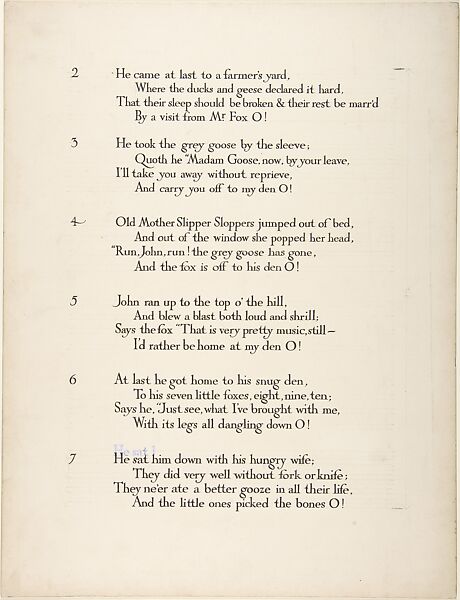 2 He came at last to a farmer's yard,
Where the ducks and geese declared it hard,
That their sleep should be broken & their rest be marr'd
By a visit from Mr Fox O!
3 He took the grey goose by the sleeve;
Quoth he "Madam Goose, now, by your leave,
I'll take you away without reprieve,
And carry you off to my den O!
4 Old Mother Slipper Sloppers jumped out of bed,
And out of the window she popped her head,
"Run, John, run! the grey goose has gone,
And the fox is off to his den O!
5 John ran up to the top o' the hill,
And blew a blast both loud and shrill;
Says the fox "That is very pretty music, still—
I'd rather be home at my den O!
6 At last he got home to his snug den,
To his seven little foxes, eight, nine, ten;
Says he, "Just see, what I've brought with me,
With its legs all dangling down O!
He sat
7 He sat him down with his hungry wife;
They did very well without fork or knife;
They ne'er ate a better gooze in all their life,
And the little ones picked the bones O!